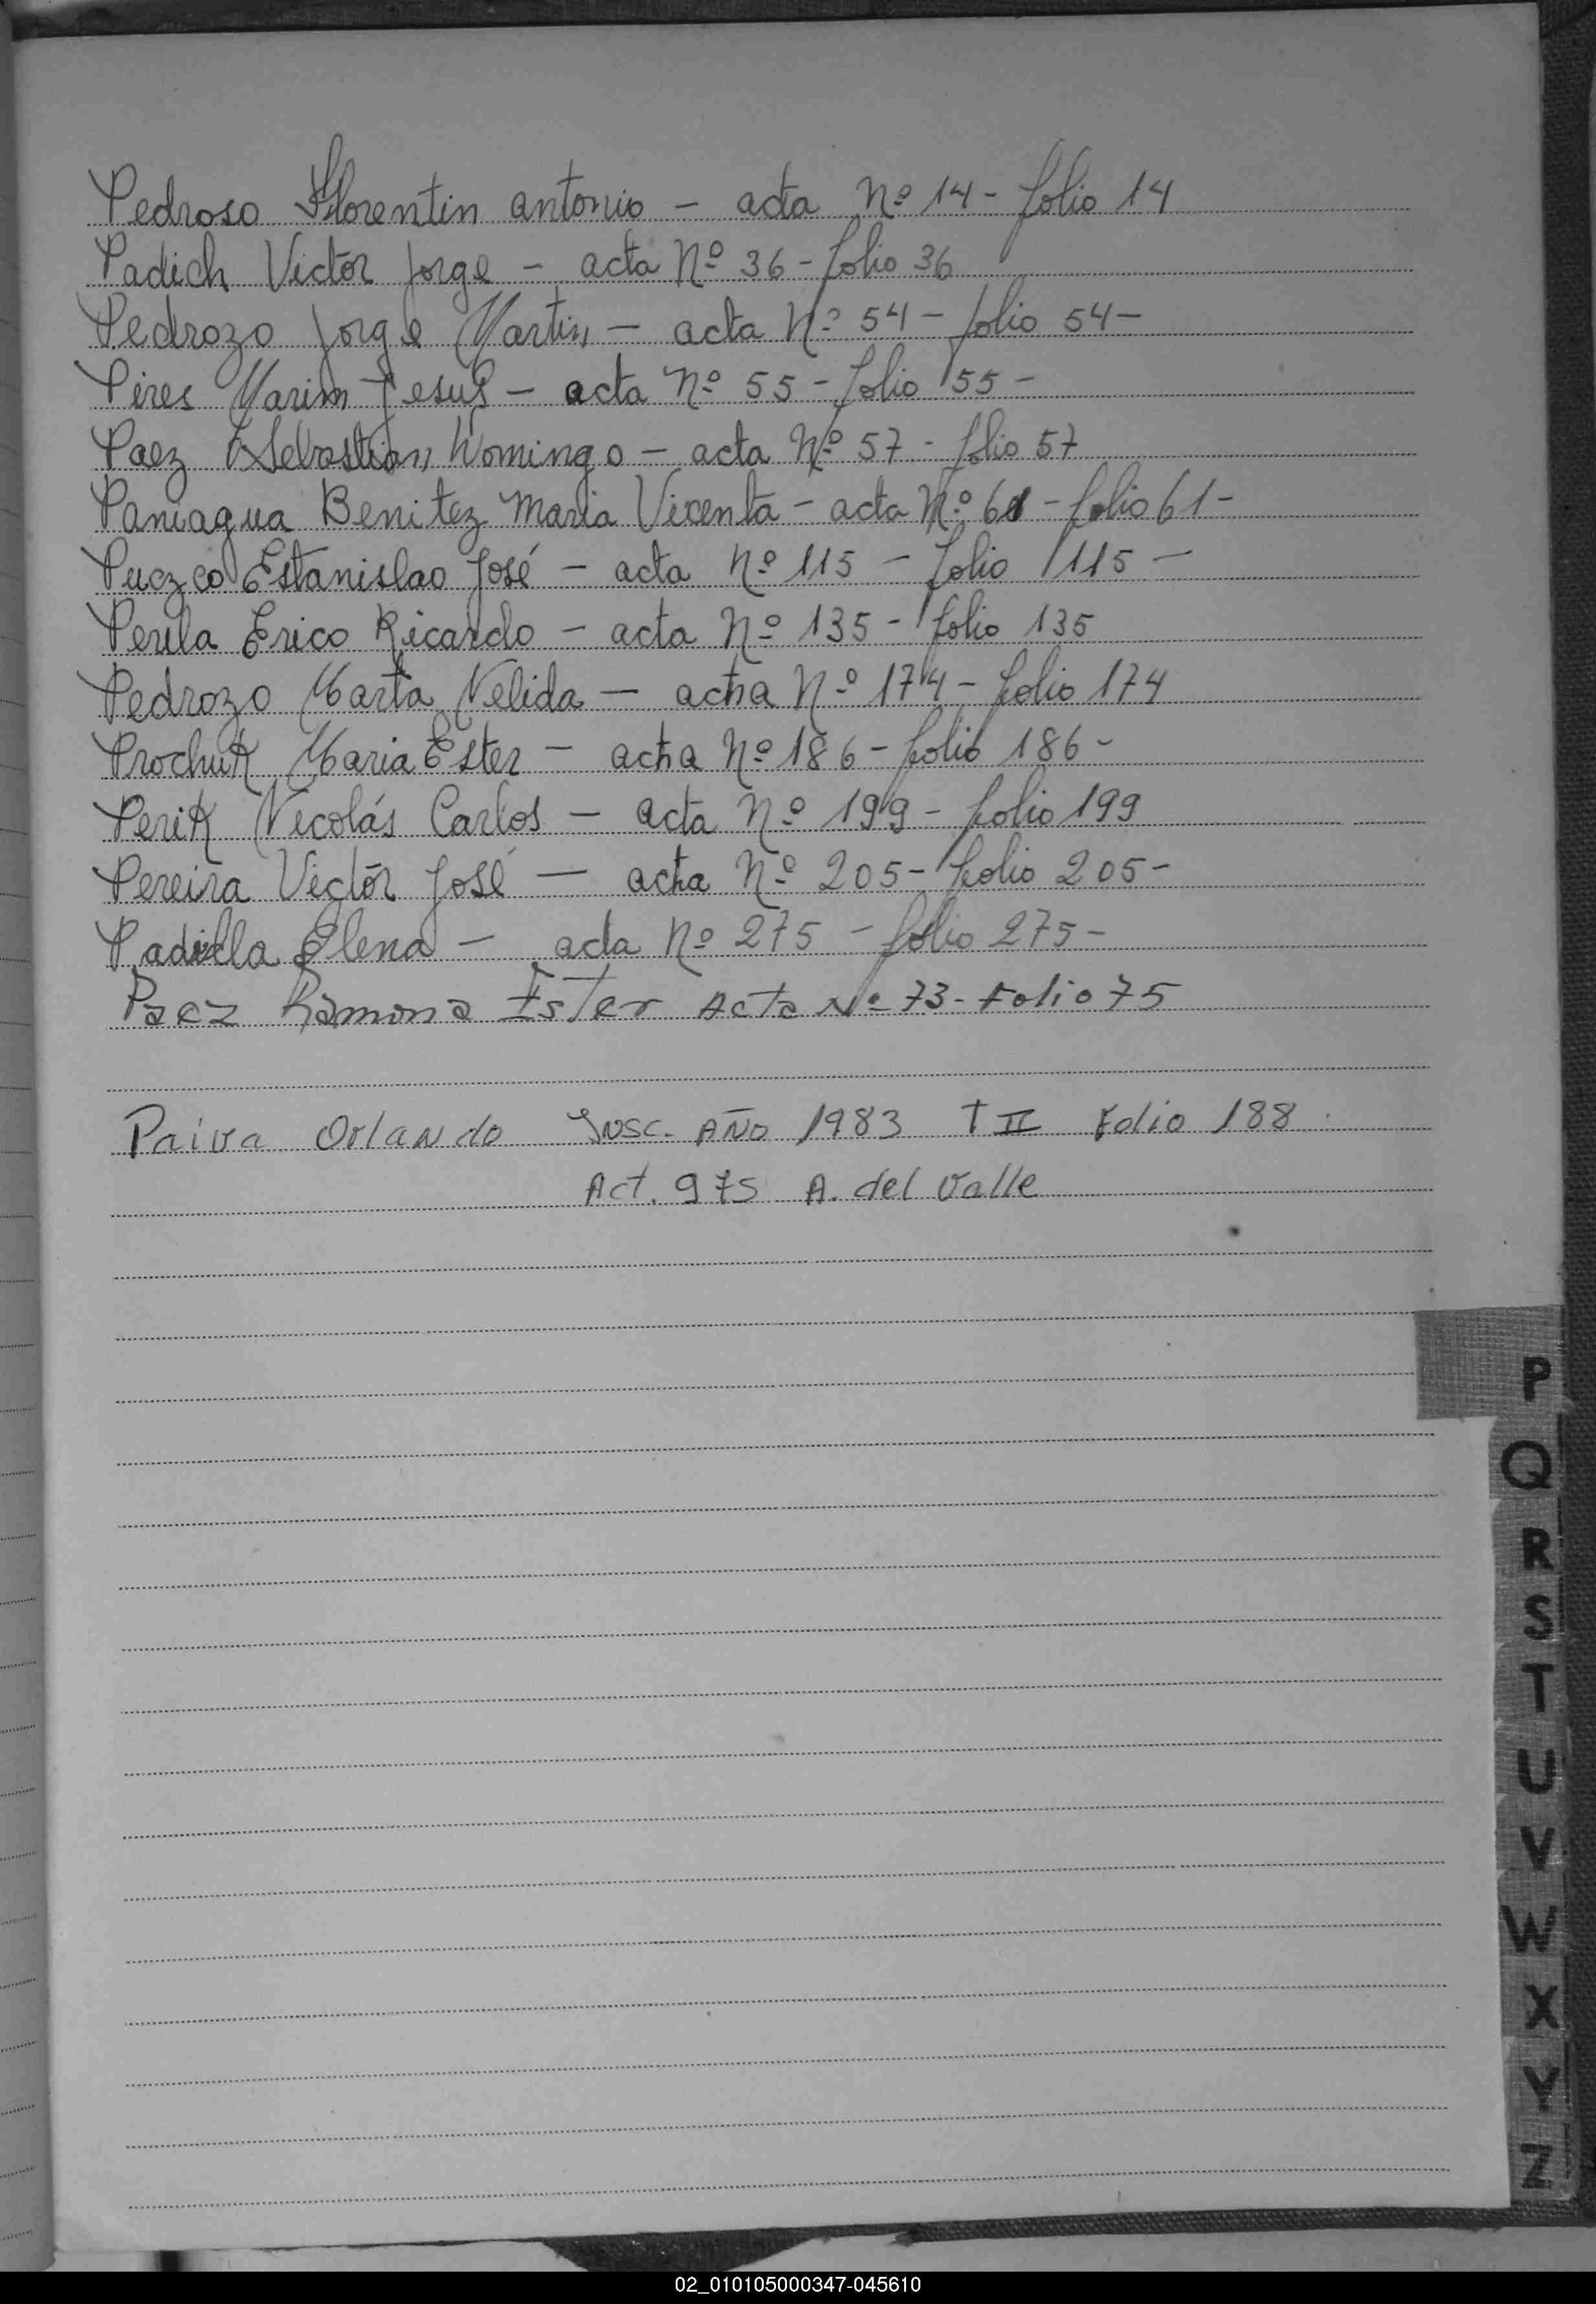 Pedroso Florentin antonio - acta Nº 14 - folio 14
Padich Victor Jorge - acta Nº 36 - folio 36
Pedrozo Jorge Martin - acta Nº 54 - folio 54 -
Pires Marim Jesus - acta Nº 55 - folio 55 -
Paez Sebastian Domingo - acta Nº 57 - folio 57
Paniagua Benitez Maria Vicenta - acta Nº 61 - folio 61 -
Puczco Estanislao José - acta Nº 115 - folio 115 -
Perila Erico Ricardo - acta Nº 135 - folio 135
Pedrozo Marta Nelida - acta Nº 174 - folio 174
Prochuk Maria Ester - acta Nº 186 - folio 186 -
Perik Nicolás Carlos - acta Nº 199 - folio 199
Pereira Victor José - acta Nº 205 - folio 205 -
Padilla Elena - acta Nº 275 - folio 275 -
Paez Ramona Ester Acta Nº 73 - Folio 75
Paiva Orlando Insc. AÑO 1983 T II Folio 188
Act. 975 A. del Valle
P
Q
R
S
T
U
V
W
X
Y
Z
02_010105000347-045610